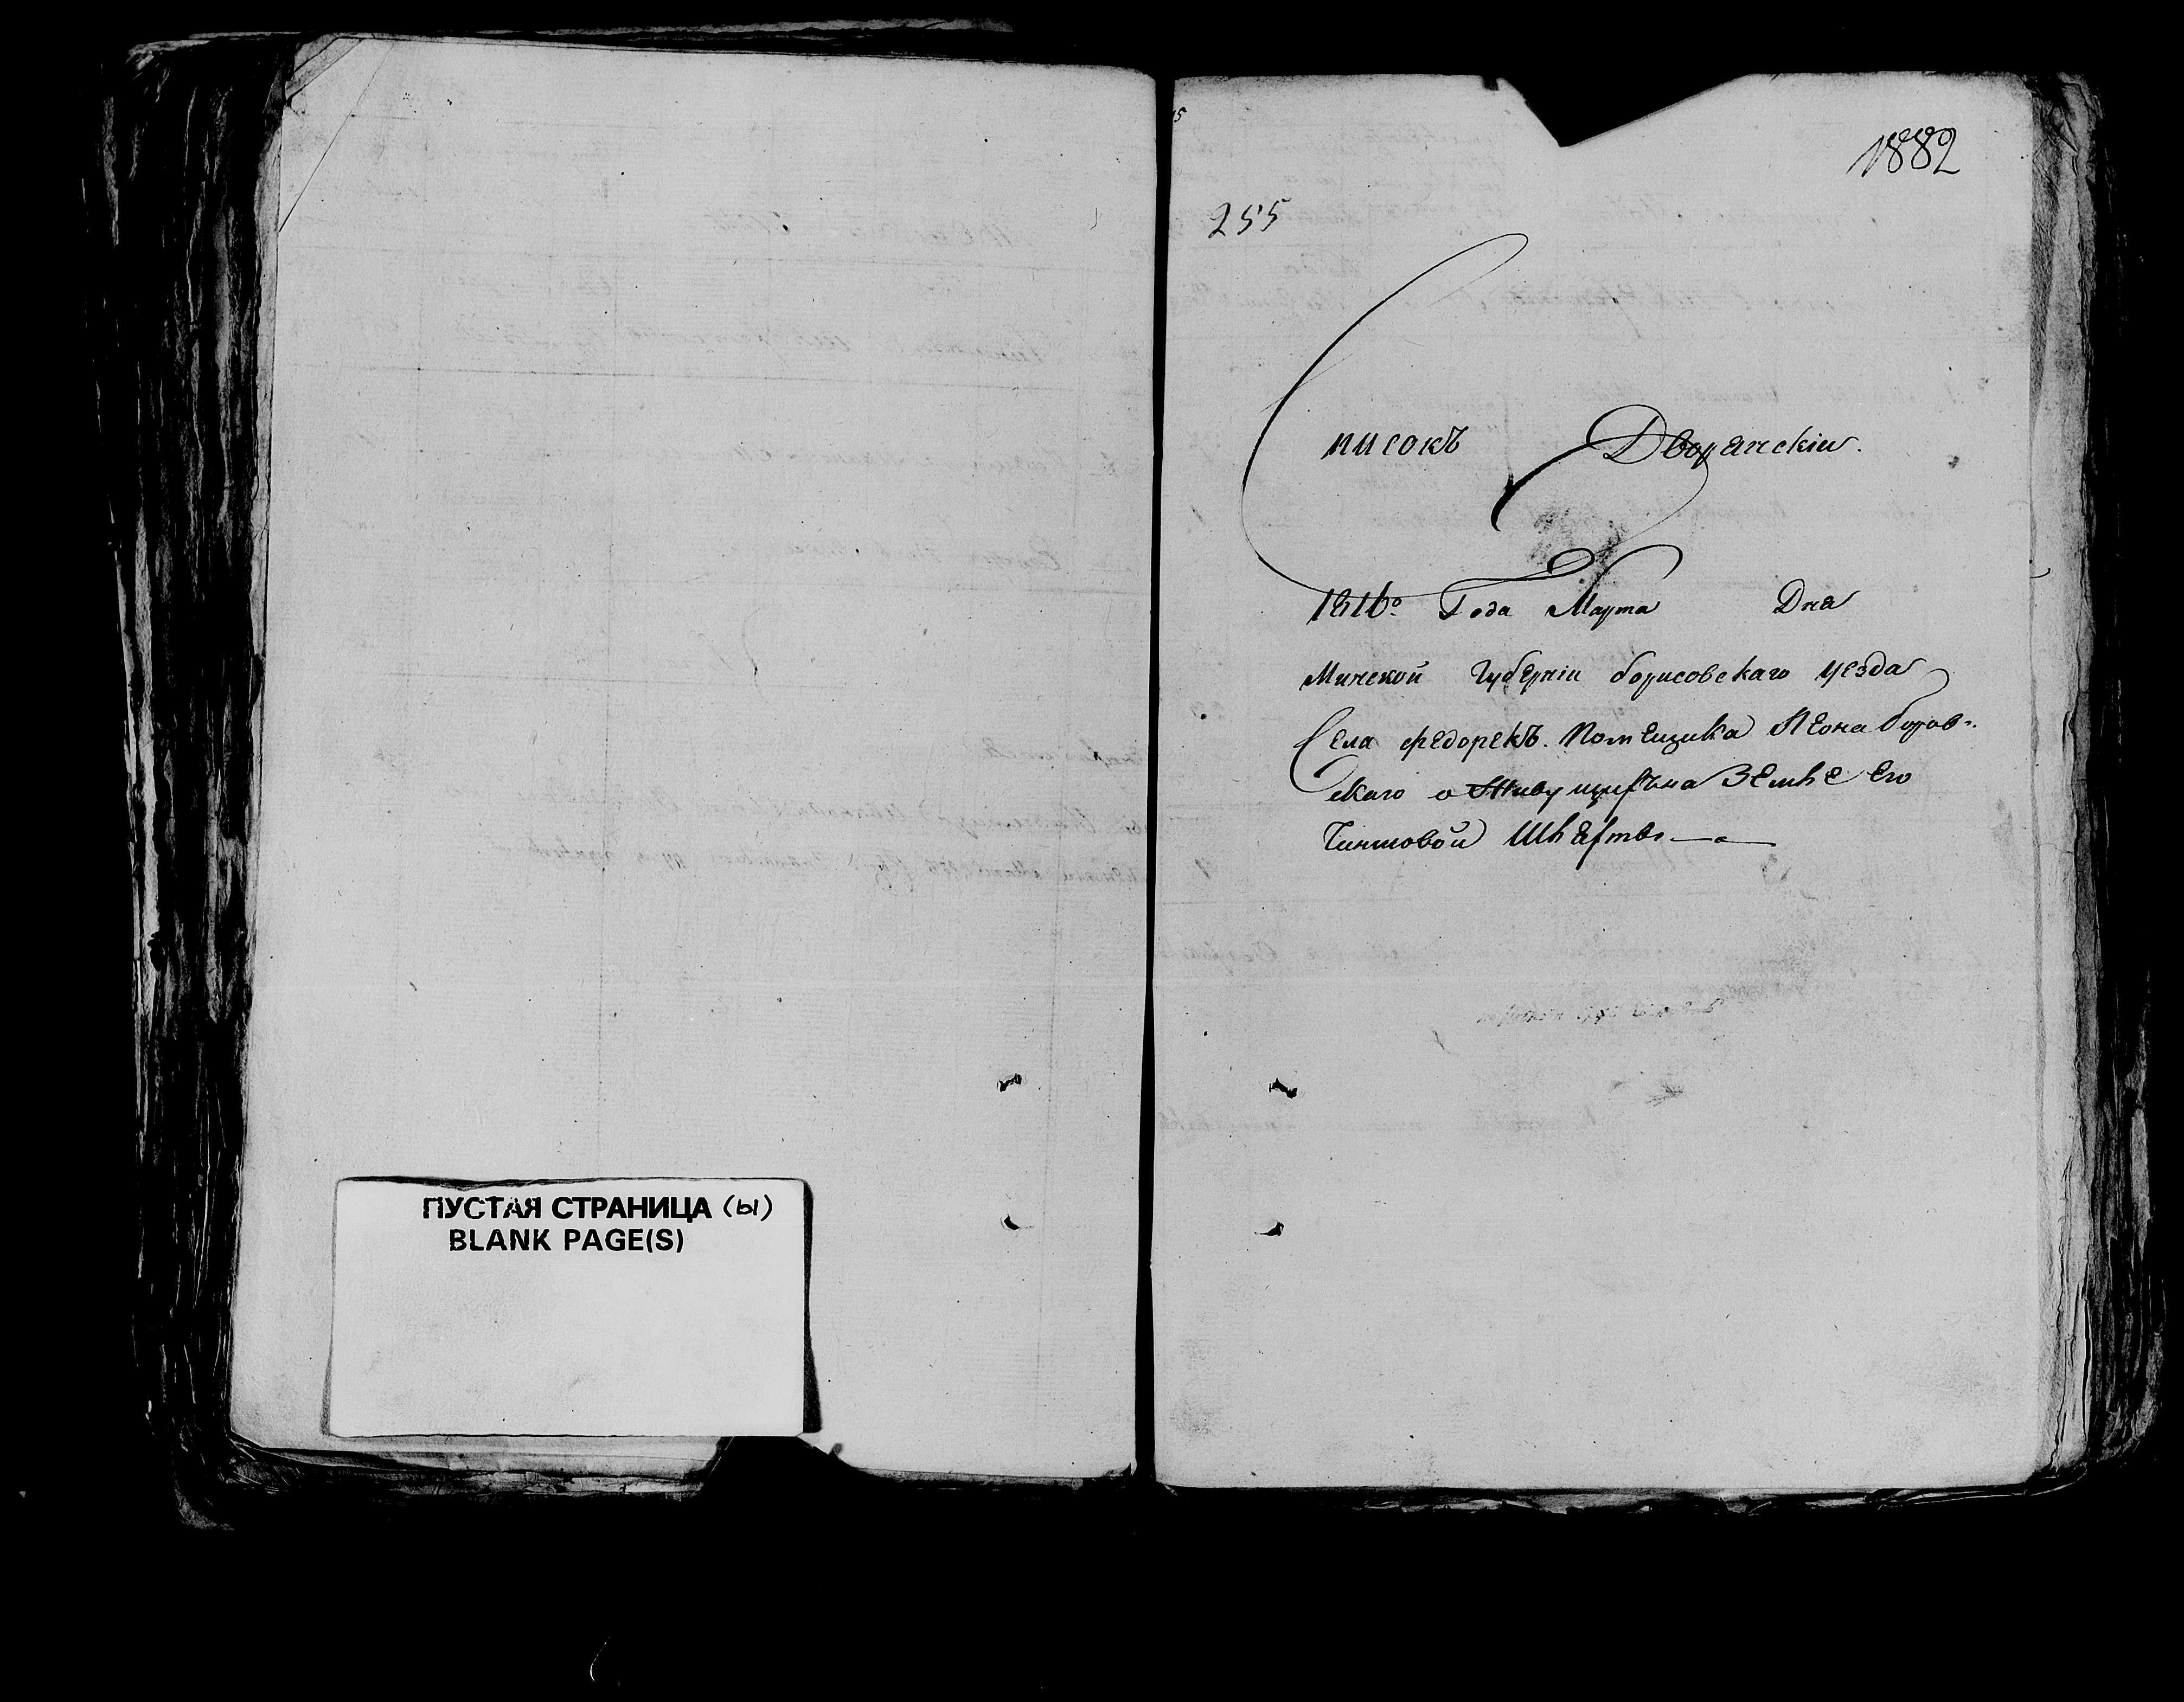 1882
255
Списокъ Дворянскіи.
1816º Года Марта Дня
Минской Губерніи борисовскаго уезда
Села федорекъ. Помещика Леона боров-
скаго о Живущихъ на Земле Его
Чиншовой Шляхты
ПУСТАЯ СТРАНИЦА (ы)
BLANK PAGE(S)